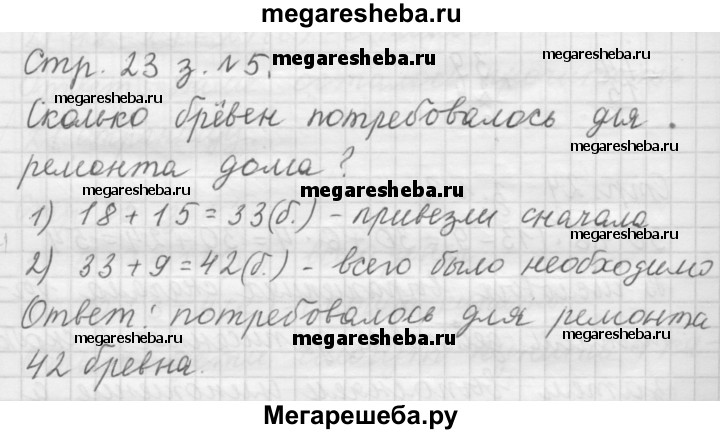 megaresheba.ru
Стр. 23 з. №5.
megaresheba.ru
megaresheba.ru
megaresheba.ru
Сколько брёвен потребовалось для
megaresheba.ru
ремонта дома?
megaresheba.ru
megaresheba.ru
1) 18 + 15 = 33(б.) - привезли сначала
megaresheba.ru
2) 33 + 9 = 42(б.) - всего было необходимо
megaresheba.ru
Ответ: потребовалось для ремонта
megaresheba.ru
megaresheba.ru
megaresheba.ru
42 бревна.
Мегарешеба.ру